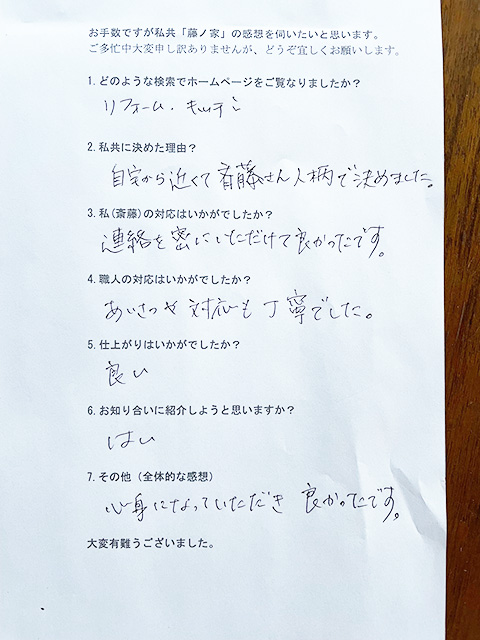 お手数ですが私共「藤ノ家」の感想を伺いたいと思います。
ご多忙中大変申し訳ありませんが、どうぞ宜しくお願いします。
1. どのような検索でホームページをご覧なりましたか?
リフォーム．キッチン
2. 私共に決めた理由?
自宅から近くて斉藤さん人柄で決めました。
3. 私(斎藤)の対応はいかがでしたか?
連絡を密にいただけて良かったです。
4. 職人の対応はいかがでしたか?
あいさつや対応も丁寧でした。
5. 仕上がりはいかがでしたか?
良い
6. お知り合いに紹介しようと思いますか?
はい
7. その他（全体的な感想）
心身になっていただき 良かったです。
大変有難うございました。